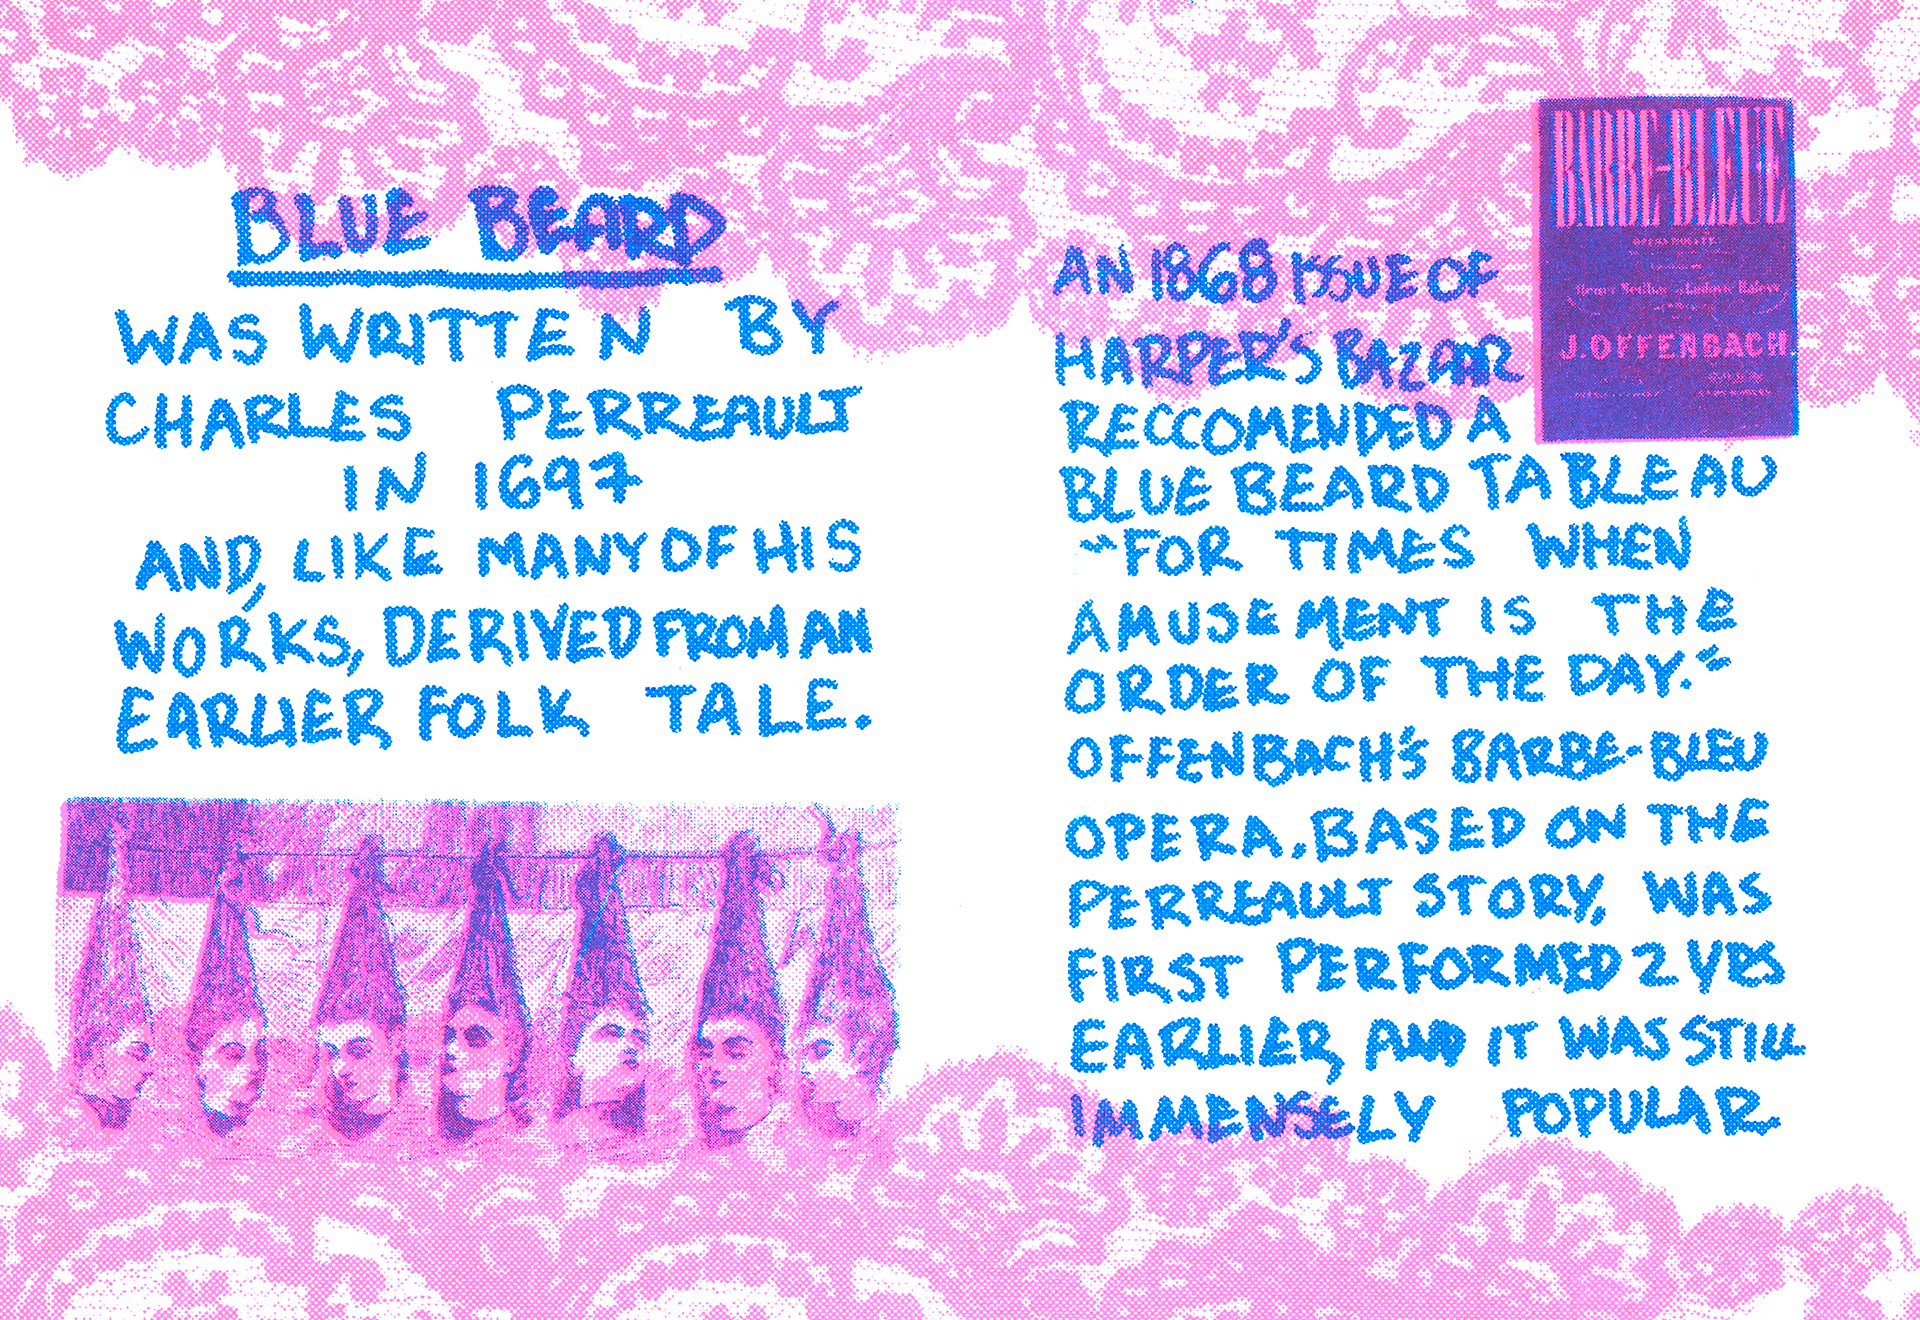 BLUE BEARD
WAS WRITTEN BY
CHARLES PERREAULT
IN 1697
AND, LIKE MANY OF HIS
WORKS, DERIVED FROM AN
EARLIER FOLK TALE.
AN 1868 ISSUE OF
HARPER'S BAZAAR
RECCOMENDED A
BLUE BEARD TABLEAU
"FOR TIMES WHEN
AMUSEMENT IS THE
ORDER OF THE DAY."
OFFENBACH'S BARBE-BLEU
OPERA, BASED ON THE
PERREAULT STORY, WAS
FIRST PERFORMED 2 YRS
EARLIER, AND IT WAS STILL
IMMENSELY POPULAR.
BARBE-BLEUE
J. OFFENBACH